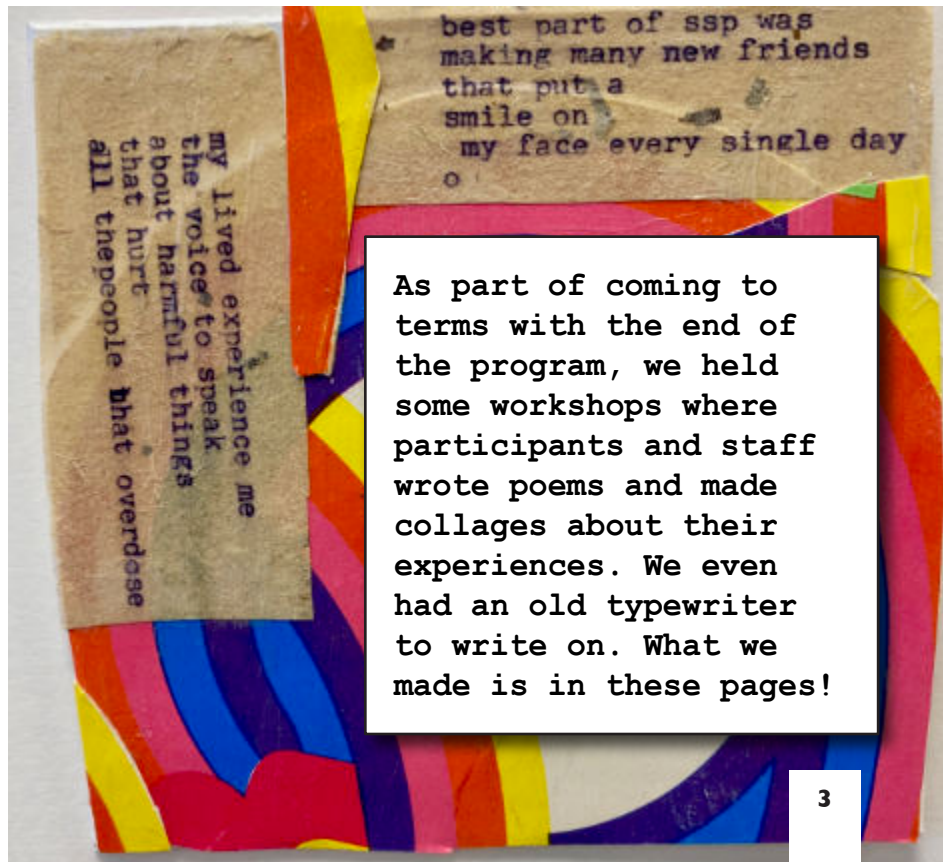 best part of ssp was
making many new friends
that put a
smile on
my face every single day
o
my lived experience me
the voice to speak
about harmful things
that hurt
all thepeople bhat overdose
As part of coming to
terms with the end of
the program, we held
some workshops where
participants and staff
wrote poems and made
collages about their
experiences. We even
had an old typewriter
to write on. What we
made is in these pages!
3